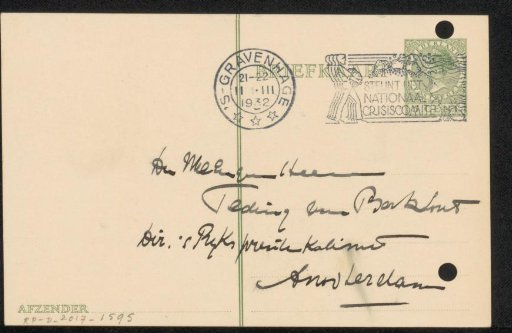 'S-GRAVENHAGE
21-22
1932
BRIEFKAART
STEUNT HET
NATIONAAL
CRISISCOMITÉ
Den Weledelgeb. Heer
Teding van Berkhout
Dir. 's Rijks prentenkabinet
Amsterdam
AFZENDER
RP-D-2017-1595